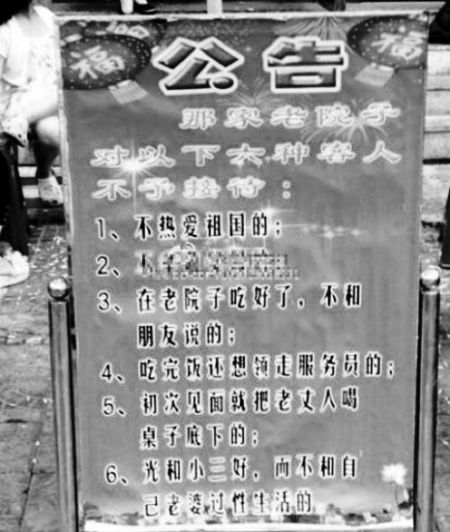 福
福
公告
那家老院子
对以下六种客人
不予接待：
1、不热爱祖国的；
2、不
3、在老院子吃好了，不和
朋友说的；
4、吃完饭还想领走服务员的；
5、初次见面就把老丈人喝
桌子底下的；
6、光和小三好，而不和自
己老婆过性生活的